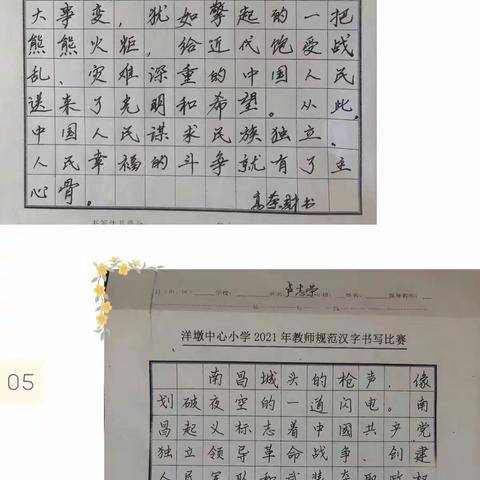 大事变，犹如擎起的一把
熊熊火炬，给近代饱受战
乱、灾难深重的中国人民
送来了光明和希望。从此，
中国人民谋求民族独立、
人民幸福的斗争就有了主
心骨。
书
卢志荣
洋墩中心小学2021年教师规范汉字书写比赛
05
南昌城头的枪声，像
划破夜空的一道闪电。南
昌起义标志着中國共产党
独立领导革命战争、创建